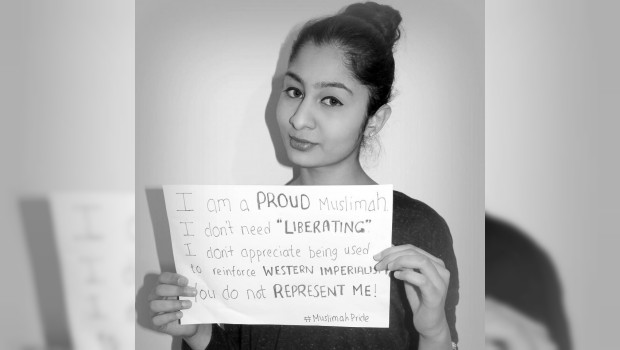 I am a PROUD Muslimah.
I don't need "LIBERATING"
I don't appreciate being used
to reinforce WESTERN IMPERIALISM
You do not REPRESENT ME!
#MuslimahPride